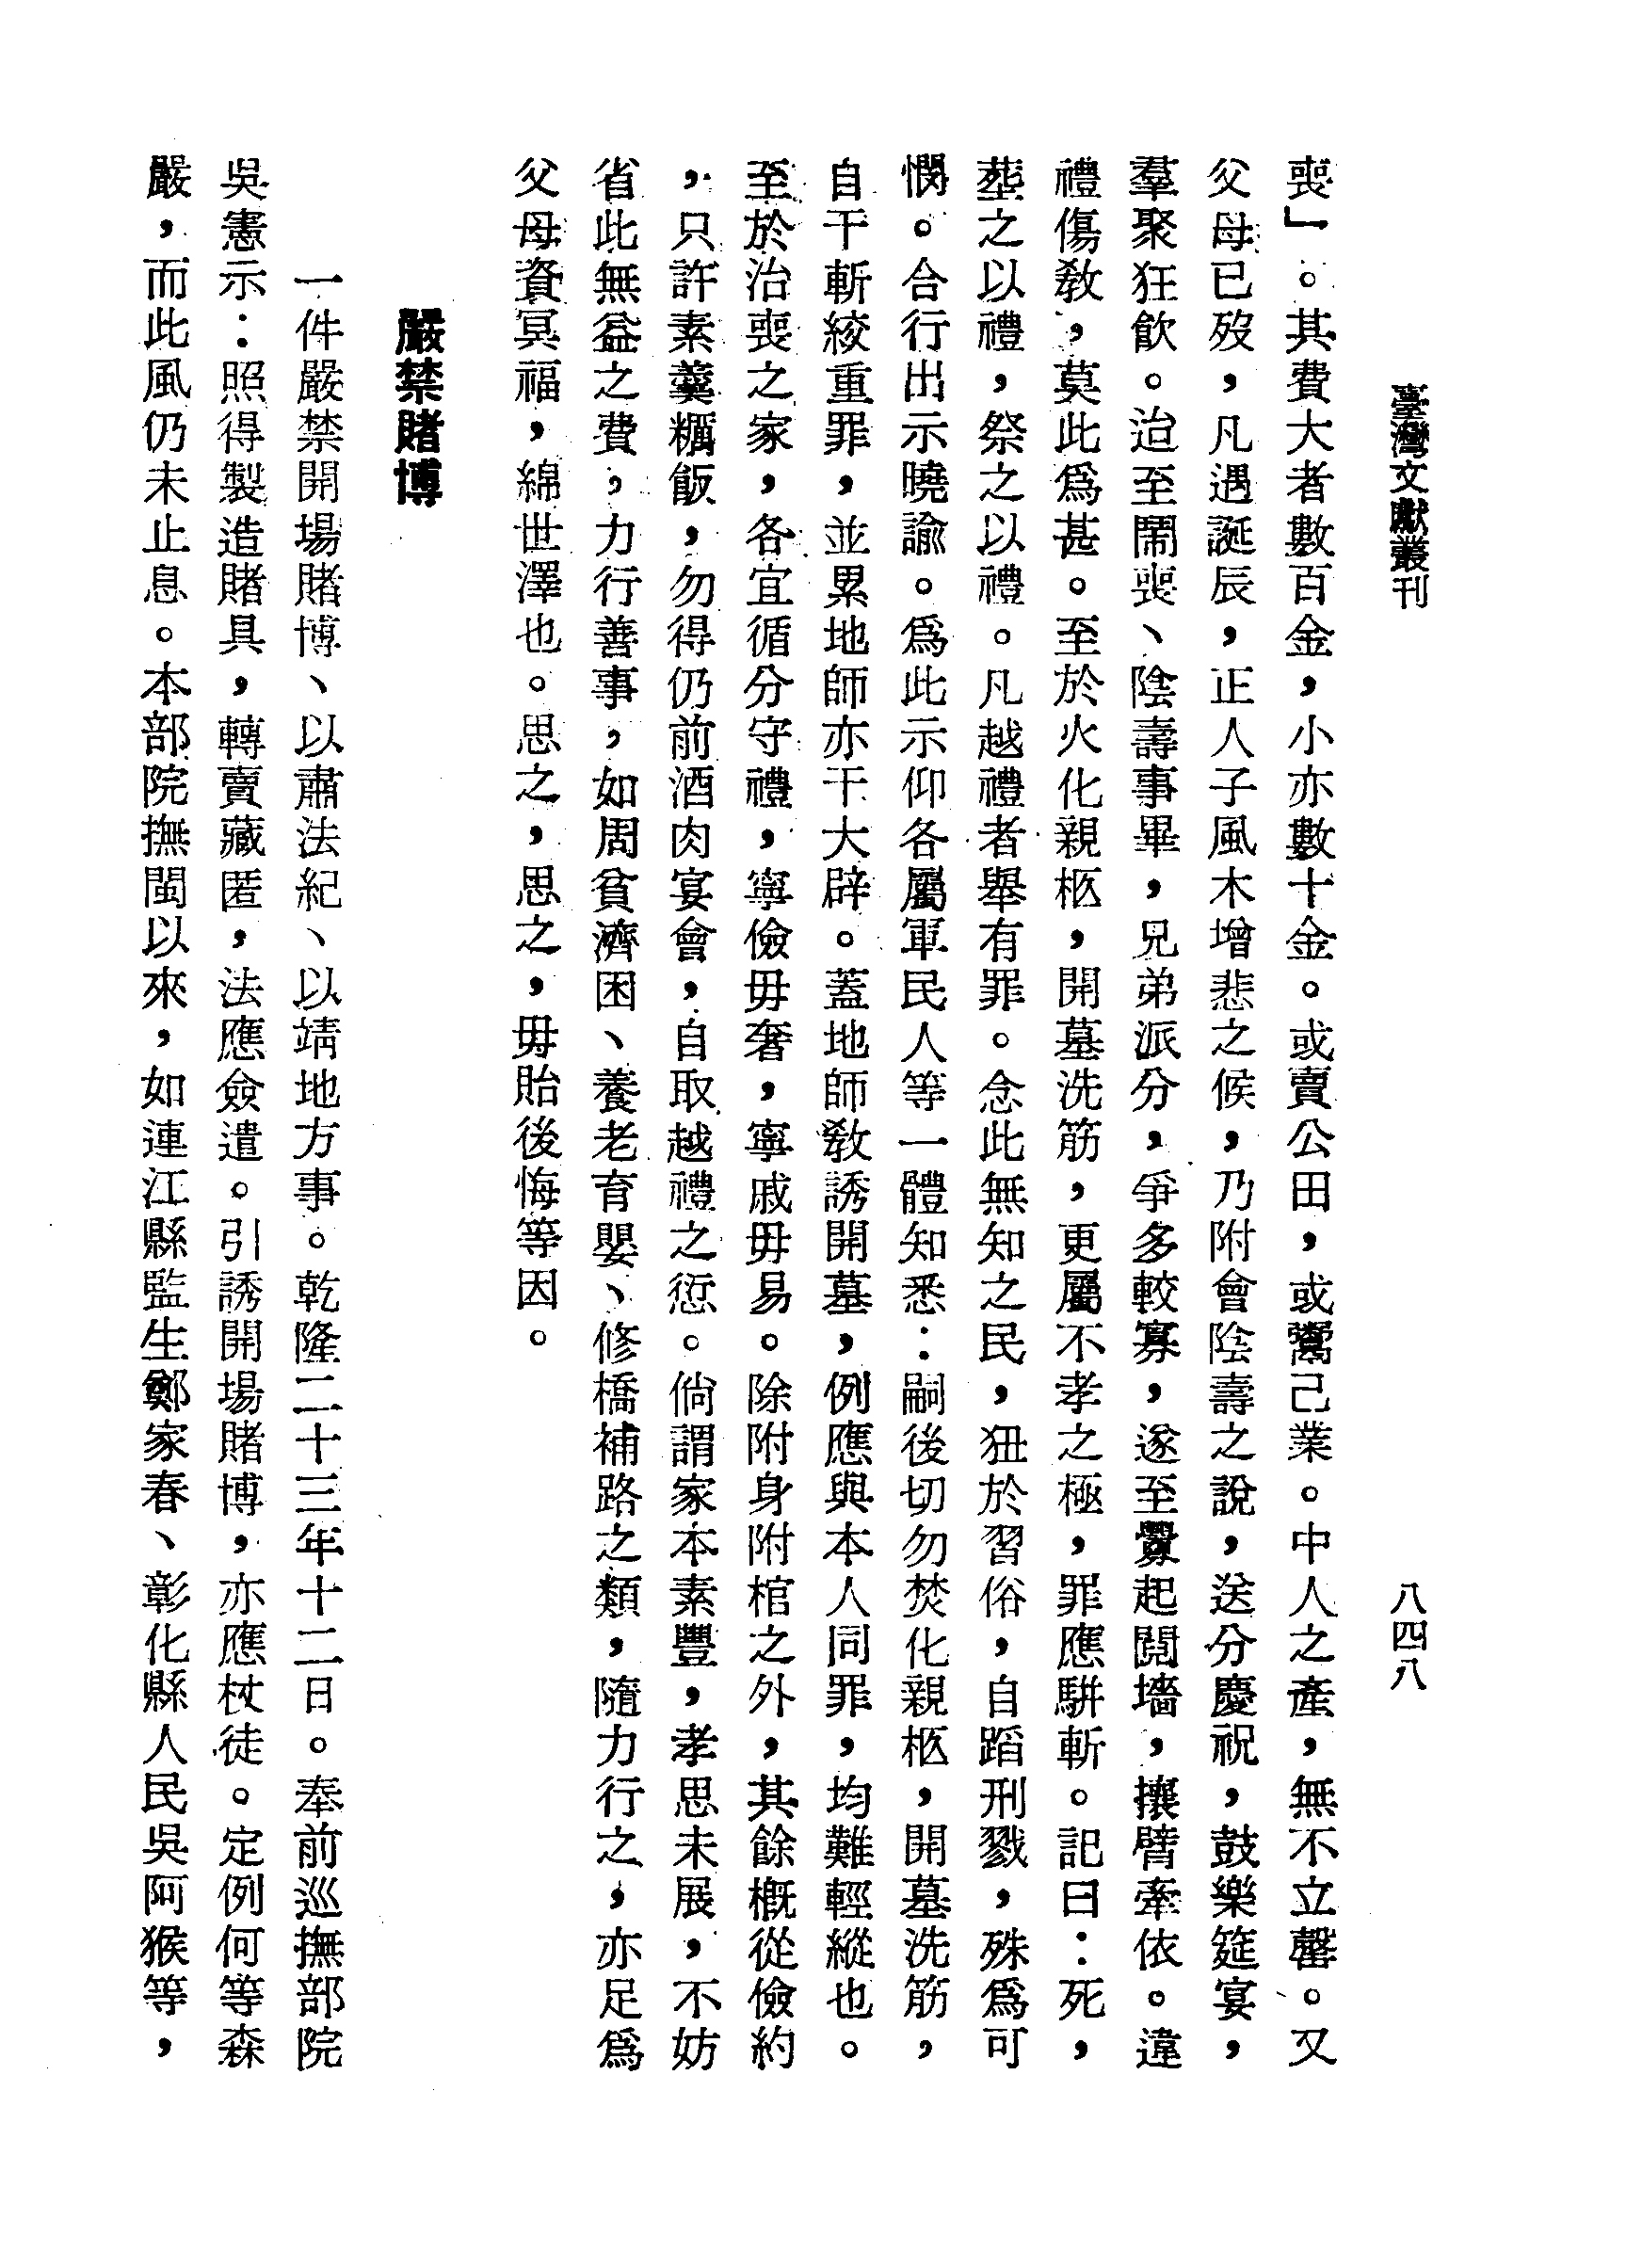 臺灣文獻叢刊
八四八
喪」。其費大者數百金，小亦數十金。或賣公田，或鬻己業。中人之產，無不立罄。又
父母已歿，凡遇誕辰，正人子風木增悲之候，乃附會陰壽之說，送分慶祝，鼓樂筵宴，
羣聚狂飲。迨至鬧喪、陰壽事畢，兄弟派分，爭多較寡，遂至釁起鬩墻，攘臂牽依。違
禮傷教，莫此爲甚。至於火化親柩，開墓洗筋，更屬不孝之極，罪應駢斬。記曰：死，
葬之以禮，祭之以禮。凡越禮者舉有罪。念此無知之民，狃於習俗，自蹈刑戮，殊爲可
憫。合行出示曉諭。爲此示仰各屬軍民人等一體知悉：嗣後切勿焚化親柩，開墓洗筋，
自干斬絞重罪，並累地師亦干大辟。蓋地師教誘開墓，例應與本人同罪，均難輕縱也。
至於治喪之家，各宜循分守禮，寧儉毋奢，寧戚毋易。除附身附棺之外，其餘概從儉約
，只許素羹糲飯，勿得仍前酒肉宴會，自取越禮之愆。倘謂家本素豐，孝思未展，不妨
省此無益之費，力行善事，如周貧濟困、養老育嬰、修橋補路之類，隨力行之，亦足爲
父母資冥福，綿世澤也。思之，思之，毋貽後悔等因。
嚴禁賭博
一件嚴禁開場賭博、以肅法紀、以靖地方事。乾隆二十三年十二日。奉前巡撫部院
吳憲示：照得製造賭具，轉賣藏匿，法應僉遣。引誘開場賭博，亦應杖徒。定例何等森
嚴，而此風仍未止息。本部院撫閩以來，如連江縣監生鄭家春、彰化縣人民吳阿猴等，